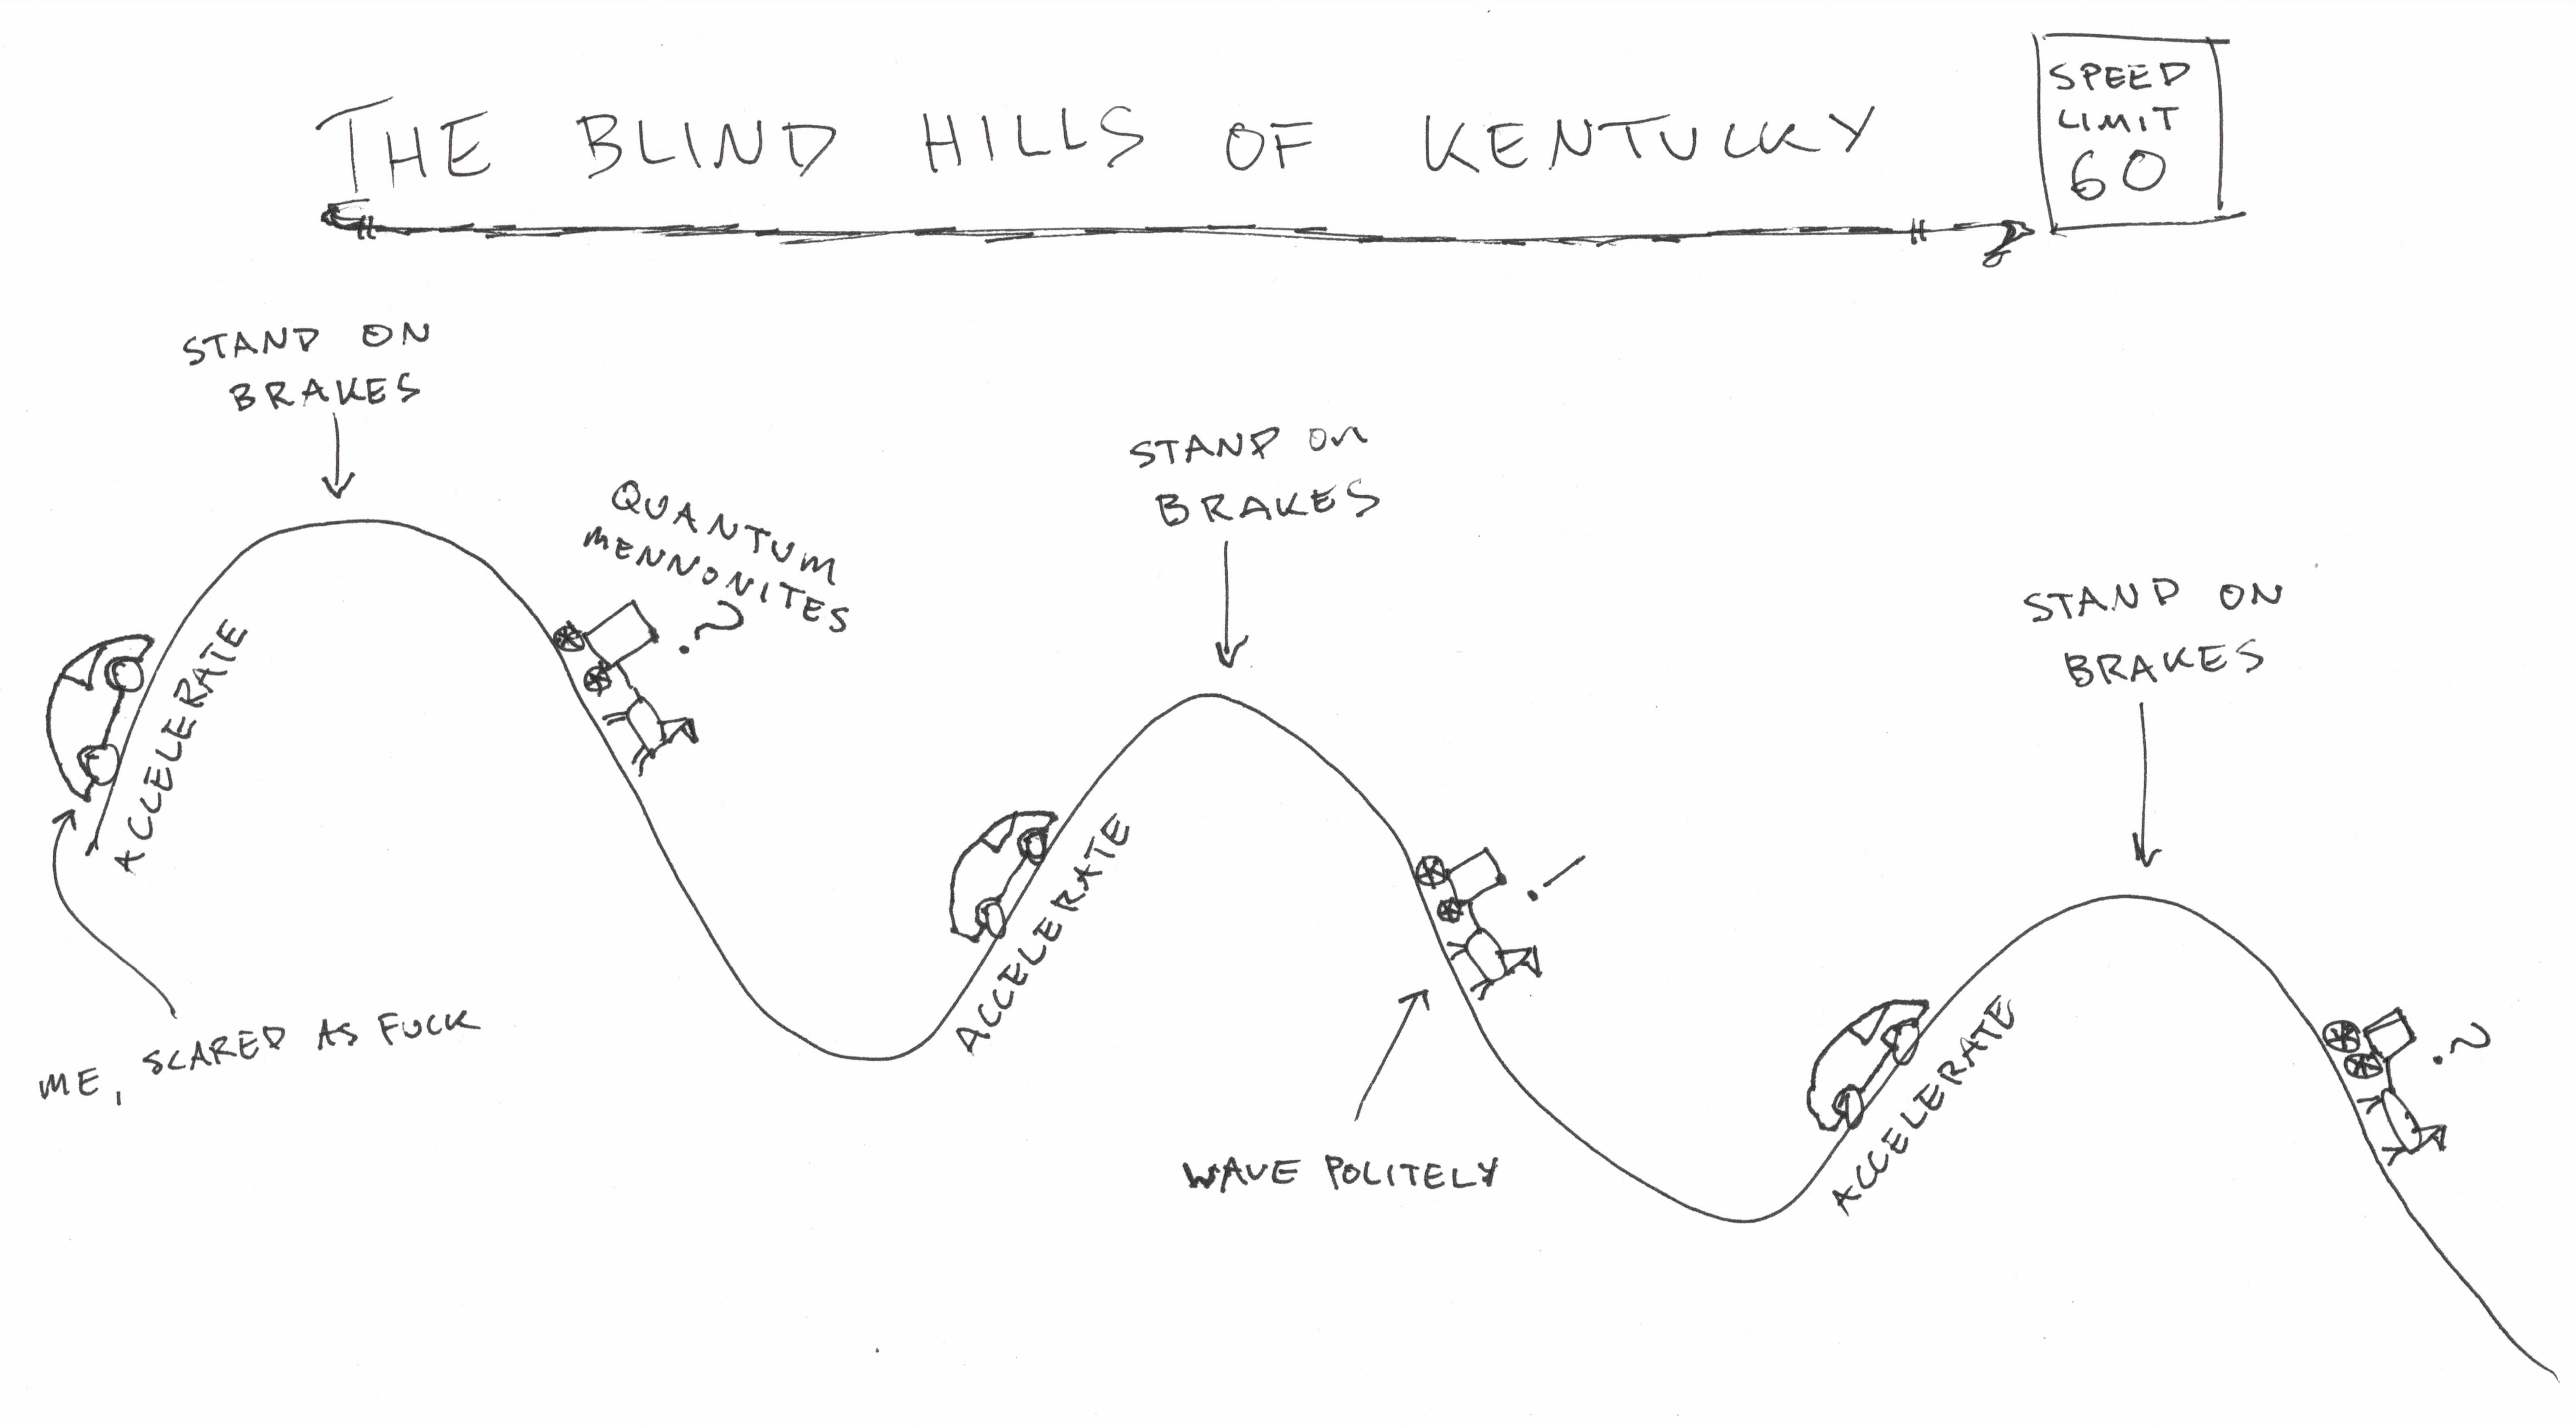 THE BLIND HILLS OF KENTUCKY
SPEED
LIMIT
60
STAND ON
BRAKES
QUANTUM
MENNONITES
?
ACCELERATE
ME, SCARED AS FUCK
STAND ON
BRAKES
ACCELERATE
!
WAVE POLITELY
STAND ON
BRAKES
ACCELERATE
?